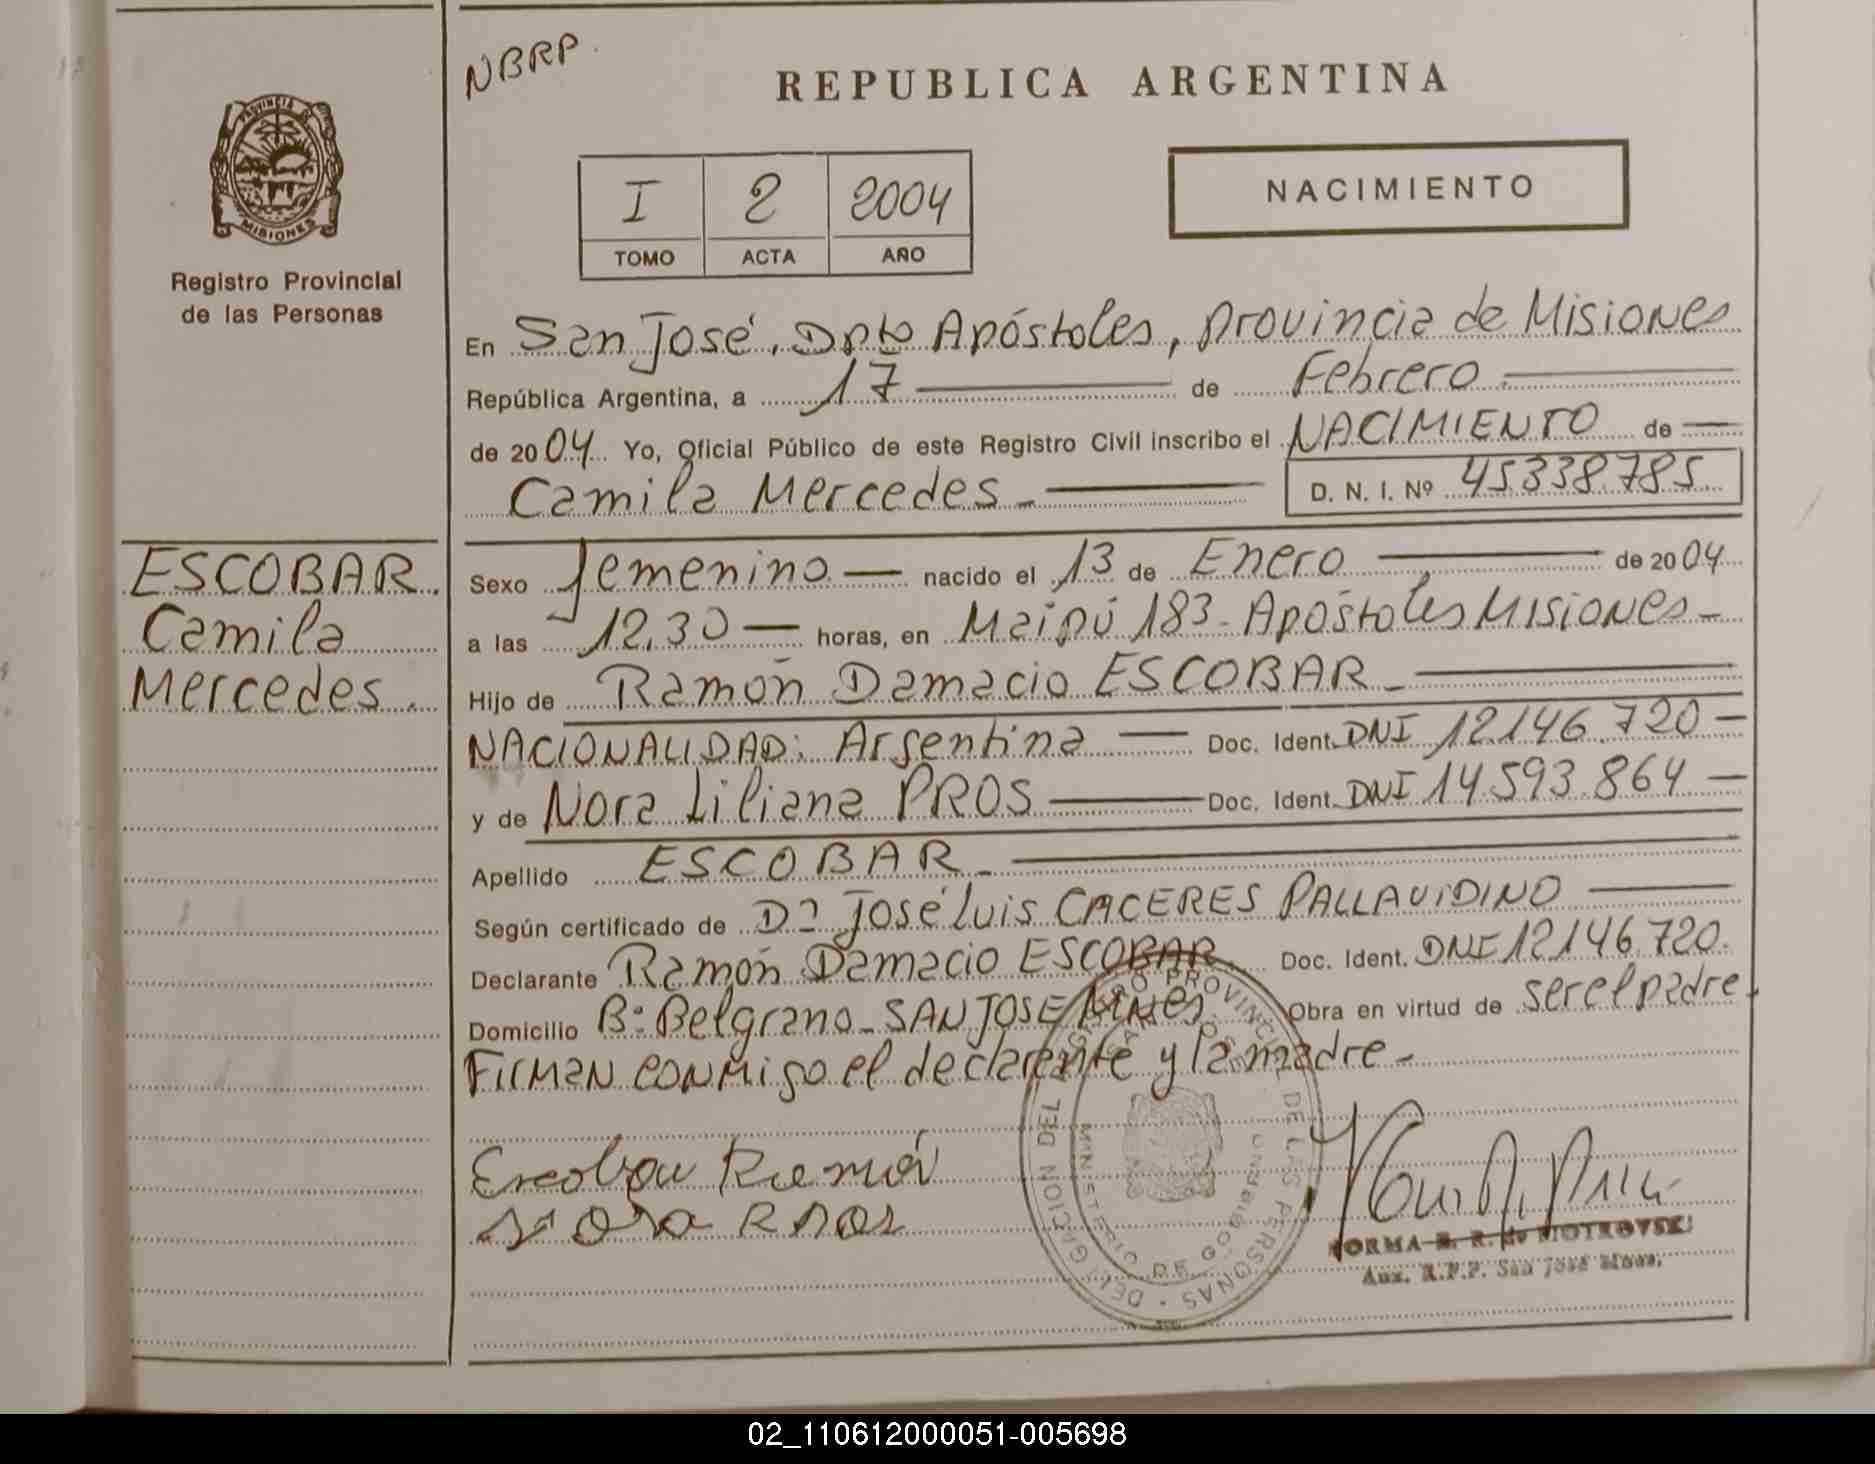 NBRP.
REPUBLICA ARGENTINA
PROVINCIA DE
MISIONES
Registro Provincial
de las Personas
I 2 2004
TOMO ACTA AÑO
NACIMIENTO
En San José, Dpto Apóstoles, provincia de Misiones
República Argentina, a 17 de Febrero
de 2004 Yo, Oficial Público de este Registro Civil inscribo el NACIMIENTO de
Camila Mercedes D. N. I. Nº 45338.785
ESCOBAR.
Camila
Mercedes.
Sexo femenino nacido el 13 de Enero de 2004
a las 12.30 horas, en Maipú 183 - Apóstoles Misiones
Hijo de Ramón Damacio ESCOBAR
NACIONALIDAD: Argentina Doc. Ident. DNI 12.146.720
y de Nora Liliana PROS Doc. Ident. DNI 14.593.864
Apellido ESCOBAR
Según certificado de Dº José Luis CACERES PALLAVIDINO
Declarante Ramón Damacio ESCOBAR Doc. Ident. DNI 12146.720.
Domicilio Bº Belgrano - SAN JOSE MNES Obra en virtud de ser el padre.
Firman conmigo el declarante y la madre -
Escobar Ramón
Nora PROS
DELEGACION DEL REGISTRO PROVINCIAL DE LAS PERSONAS
SAN JOSE
MINISTERIO DE GOBIERNO
NORMA B. R. de PIOTROVSKI
Aux. R.P.P. San José Mnes.
02_110612000051-005698